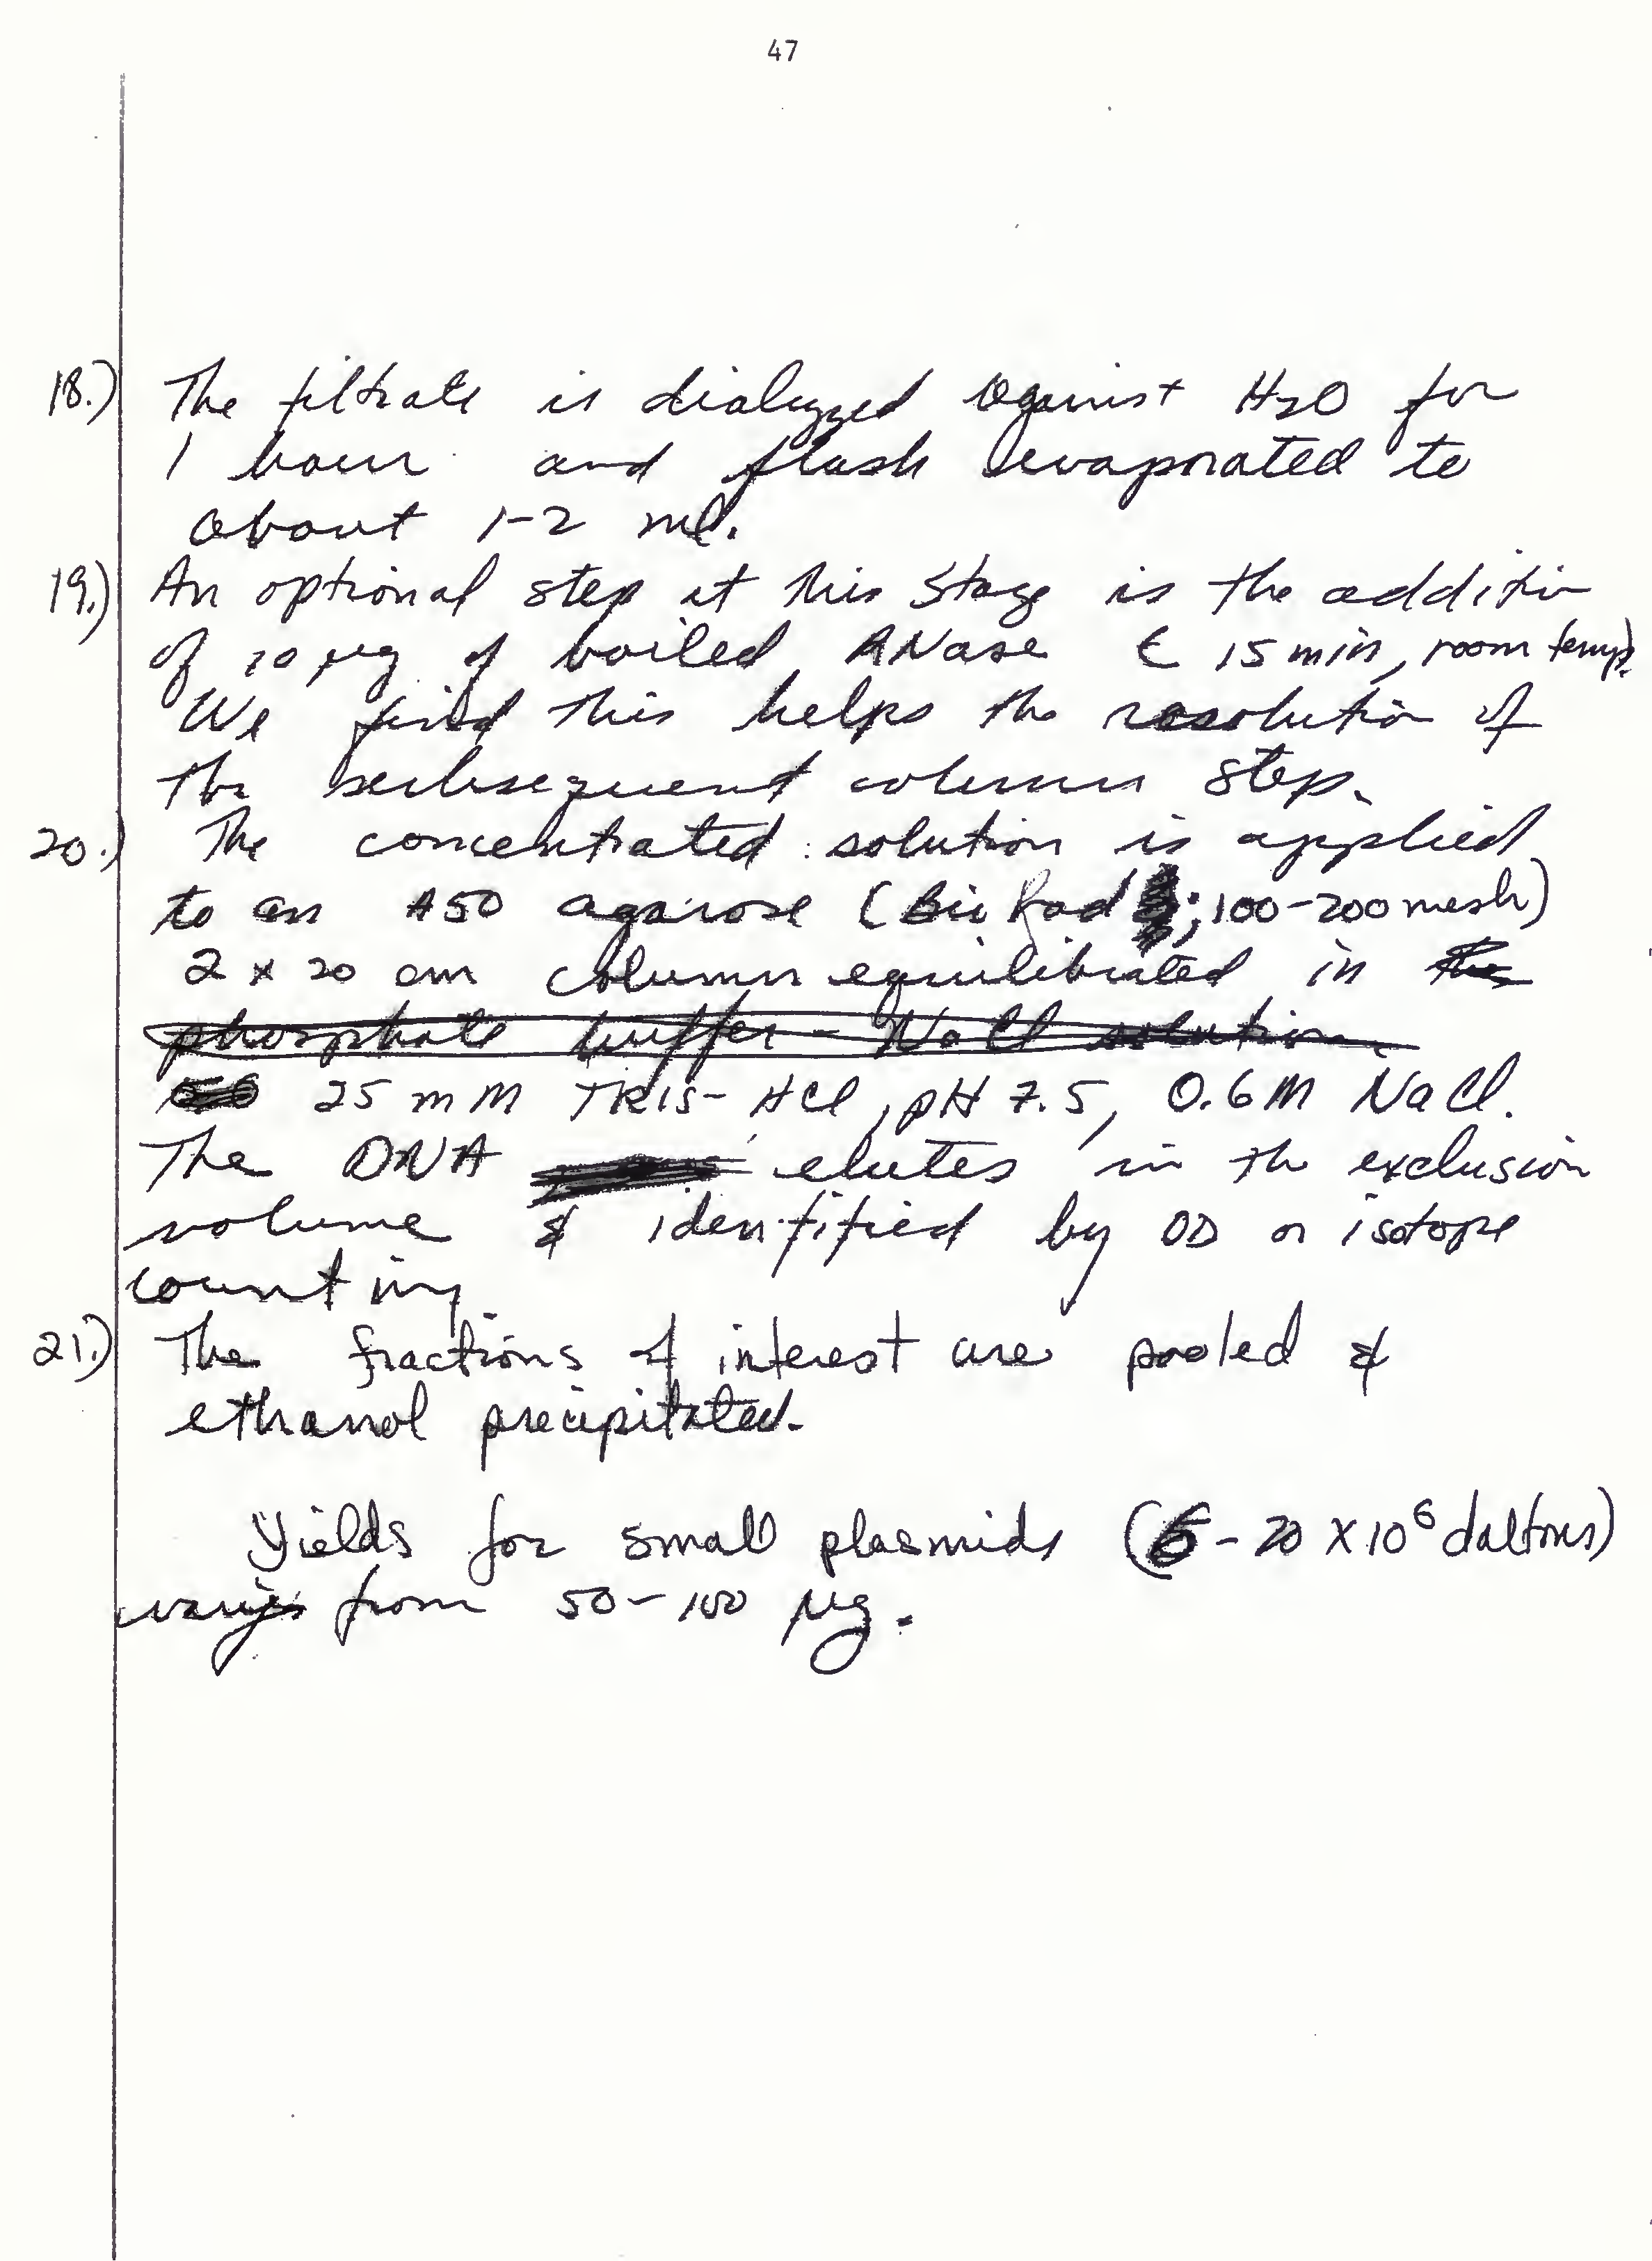 47
18.) The filtrate is dialyzed against H2O for
1 hour and flash evaporated to
about 1-2 ml.
19.) An optional step at this stage is the addition
of 10 µg of boiled RNase ( 15 min, room temp).
We find this helps the resolution of
the subsequent column step.
20.) The concentrated solution is applied
to an A50 agarose (Bio Rad ; 100-200 mesh)
2 x 20 cm column equilibrated in the
phosphate buffer - NaCl solution
25 mM TRIS-HCl, pH 7.5, 0.6M NaCl.
The DNA elutes in the exclusion
volume & identified by OD or isotope
counting.
21.) The fractions of interest are pooled &
ethanol precipitated.
Yields for small plasmids (6 - 20 X 10⁶ daltons)
vary from 50-100 µg.